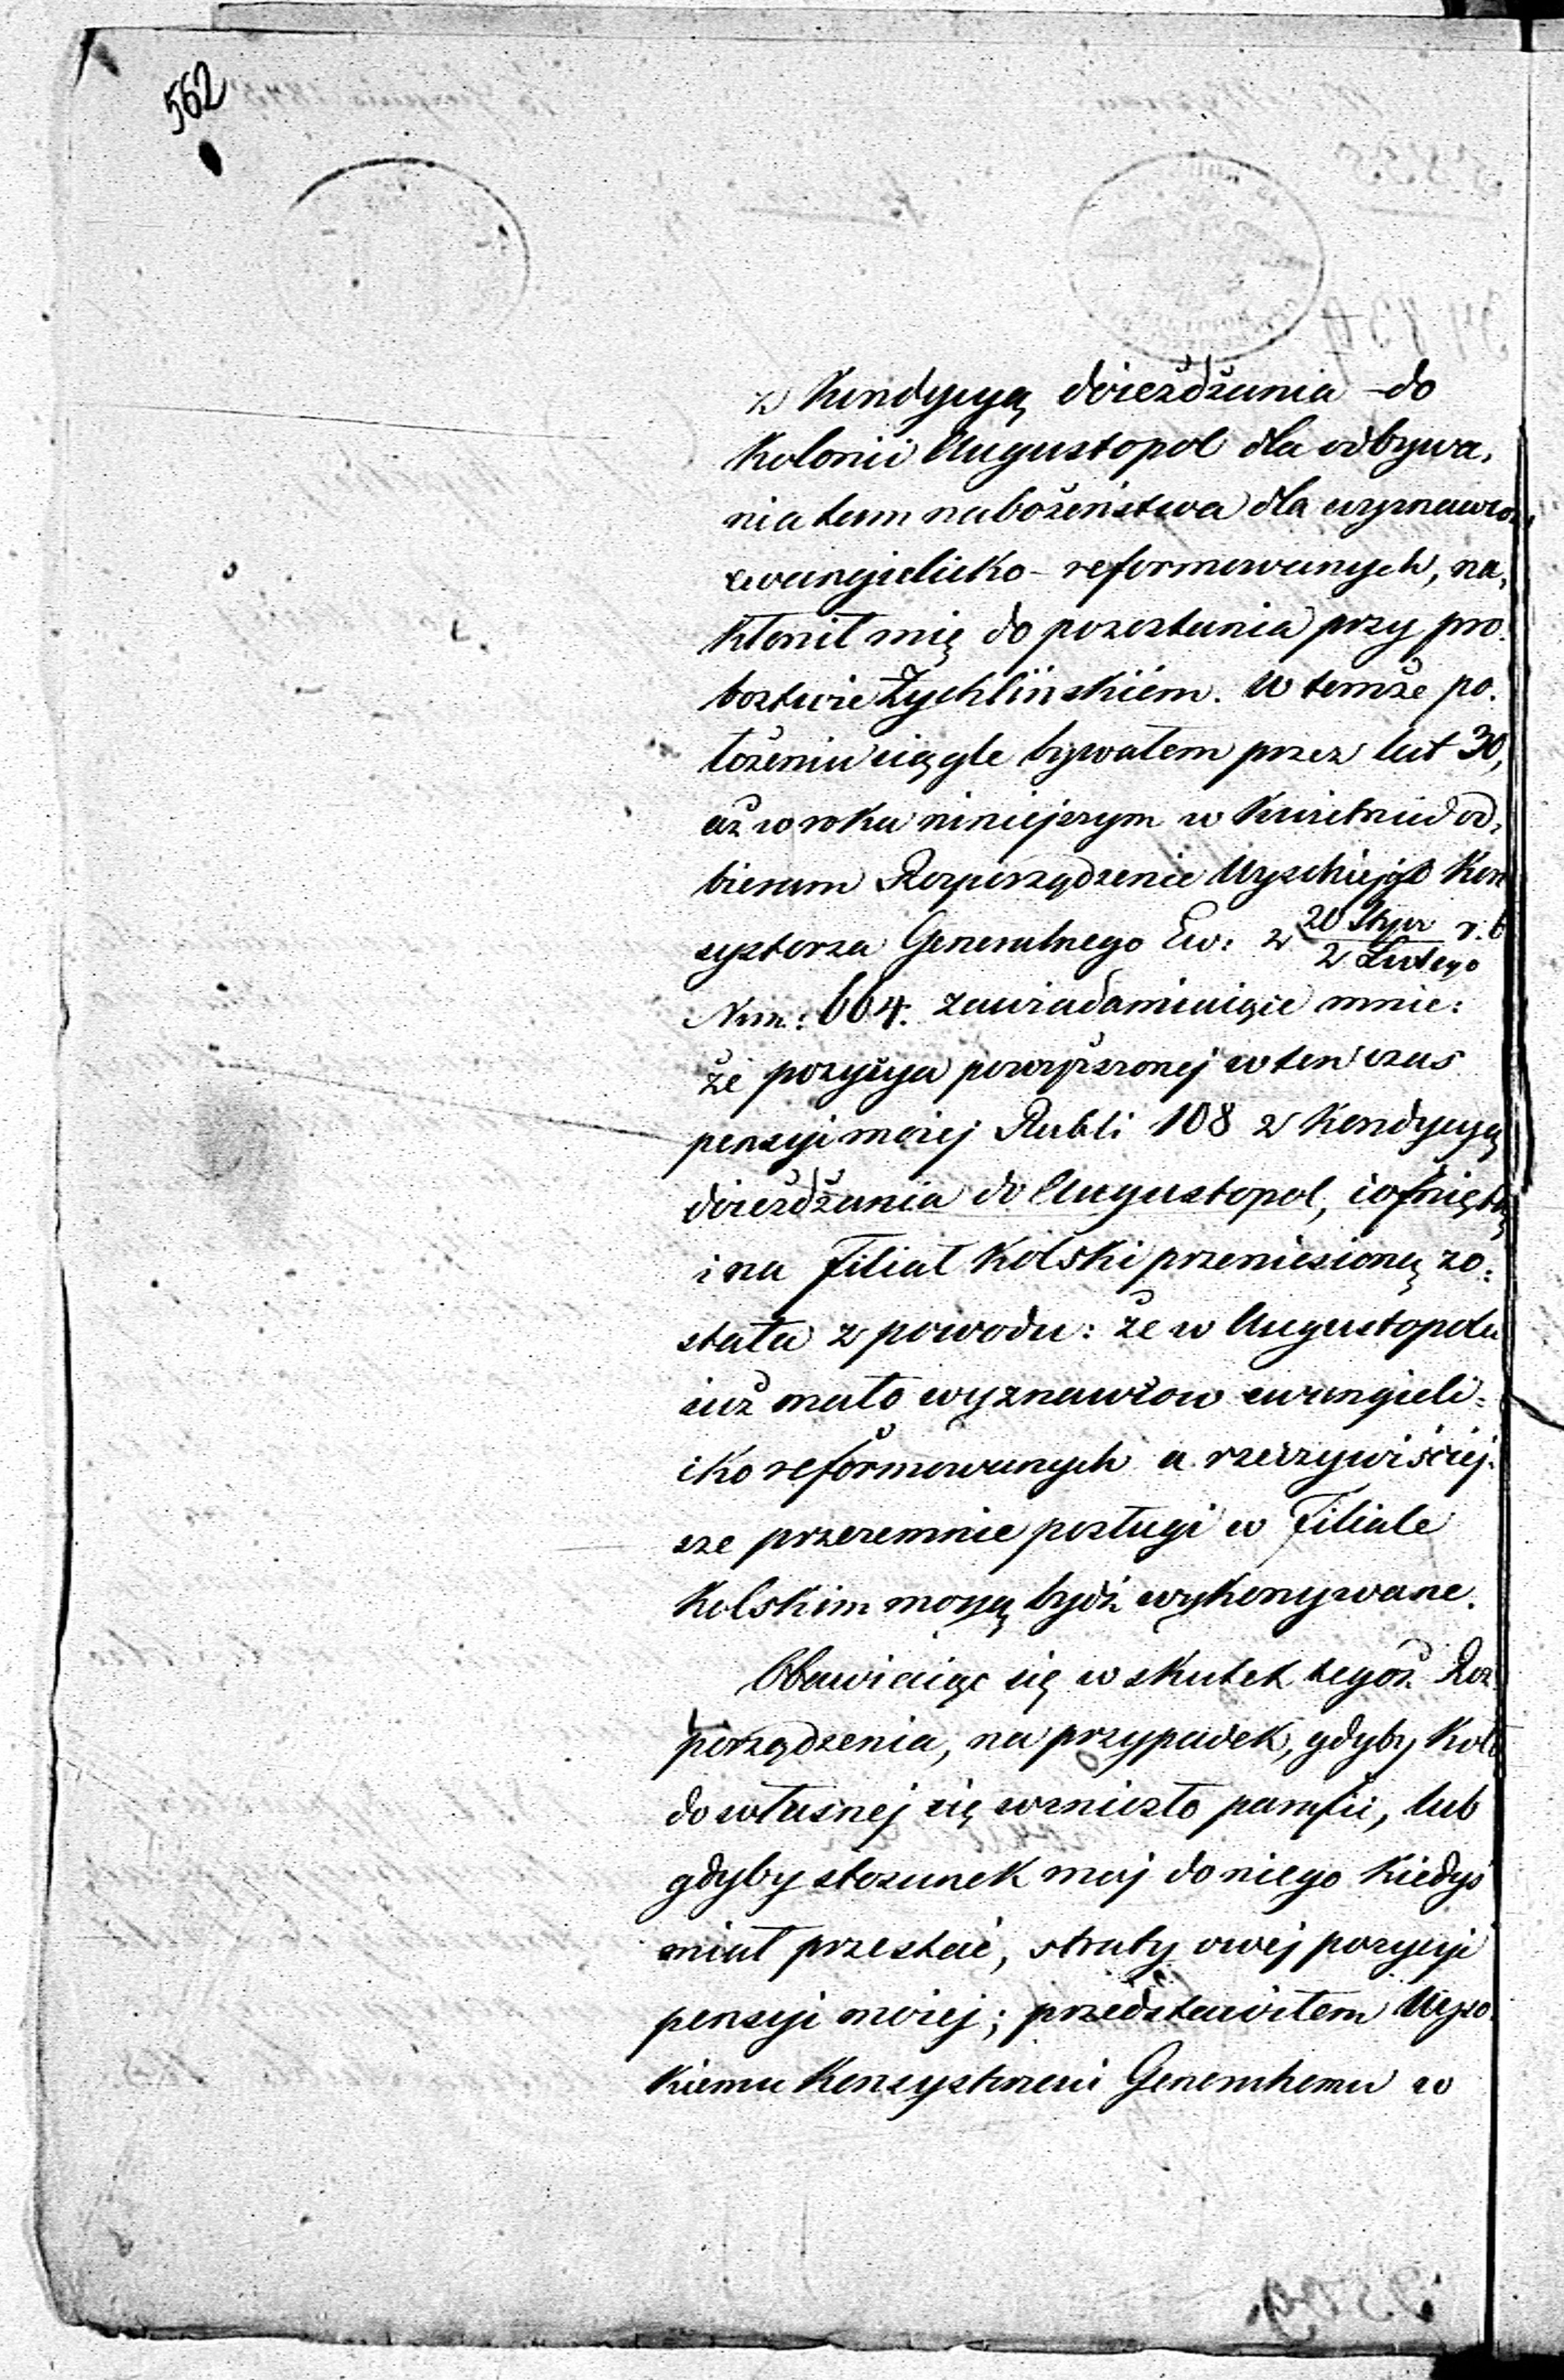 562
z Kondycyą doieżdżania do
Kolonii Augustopol dla odbywa-
nia tam nabożeństwa dla wyznawców
ewangielicko-reformowanych, na-
kłonił mię do pozostania przy pro-
bostwie Żychlińskiém. W temże po-
łożeniu ciągle bywałem przez lat 30,
aż w roku niniejszym w Kwietniu od-
bieram Rozporządzenie Wysokiego Kon
systorza Generalnego Ew: z 20 Stycz r. b
2 Lutego
Num: 664. zawiadamiaiące mnie:
że pozycya powyższonej w ten czas
pensyi moiej Rubli 108 z Kondycyą
doieżdżania do Augustopol, cofniętą
i na Filiał Kolski przeniesioną zo-
stała z powodu: że w Augustopolu
iuż mało wyznawców ewangieli-
cko reformowanych a rzeczywiściej-
sze przezemnie posługi w Filiale
Kolskim mogą bydź wykonywane.
Obawiaiąc się w skutek tegoż Roz
porządzenia, na przypadek, gdyby Koło
do własnej się wzniosło parafii, lub
gdyby stosunek mój do niego kiedyś
miał przestać, straty owej pozycyi
pensyi moiej; przedstawiłem Wyso-
kiemu Konsystorzowi Generalnemu w